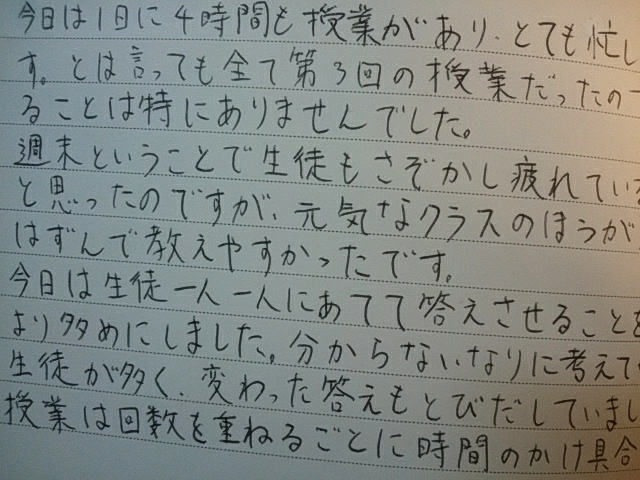 今日は1日に4時間も授業があり、とても忙し
す。とは言っても全て第3回の授業だったの
ることは特にありませんでした。
週末ということで生徒もさぞかし疲れている
と思ったのですが、元気なクラスのほうが
はずんで教えやすかったです。
今日は生徒一人一人にあてて答えさせることを
より多めにしました。分からないなりに考えてい
生徒が多く、変わった答えもとびだしていまし
授業は回数を重ねるごとに時間のかけ具合